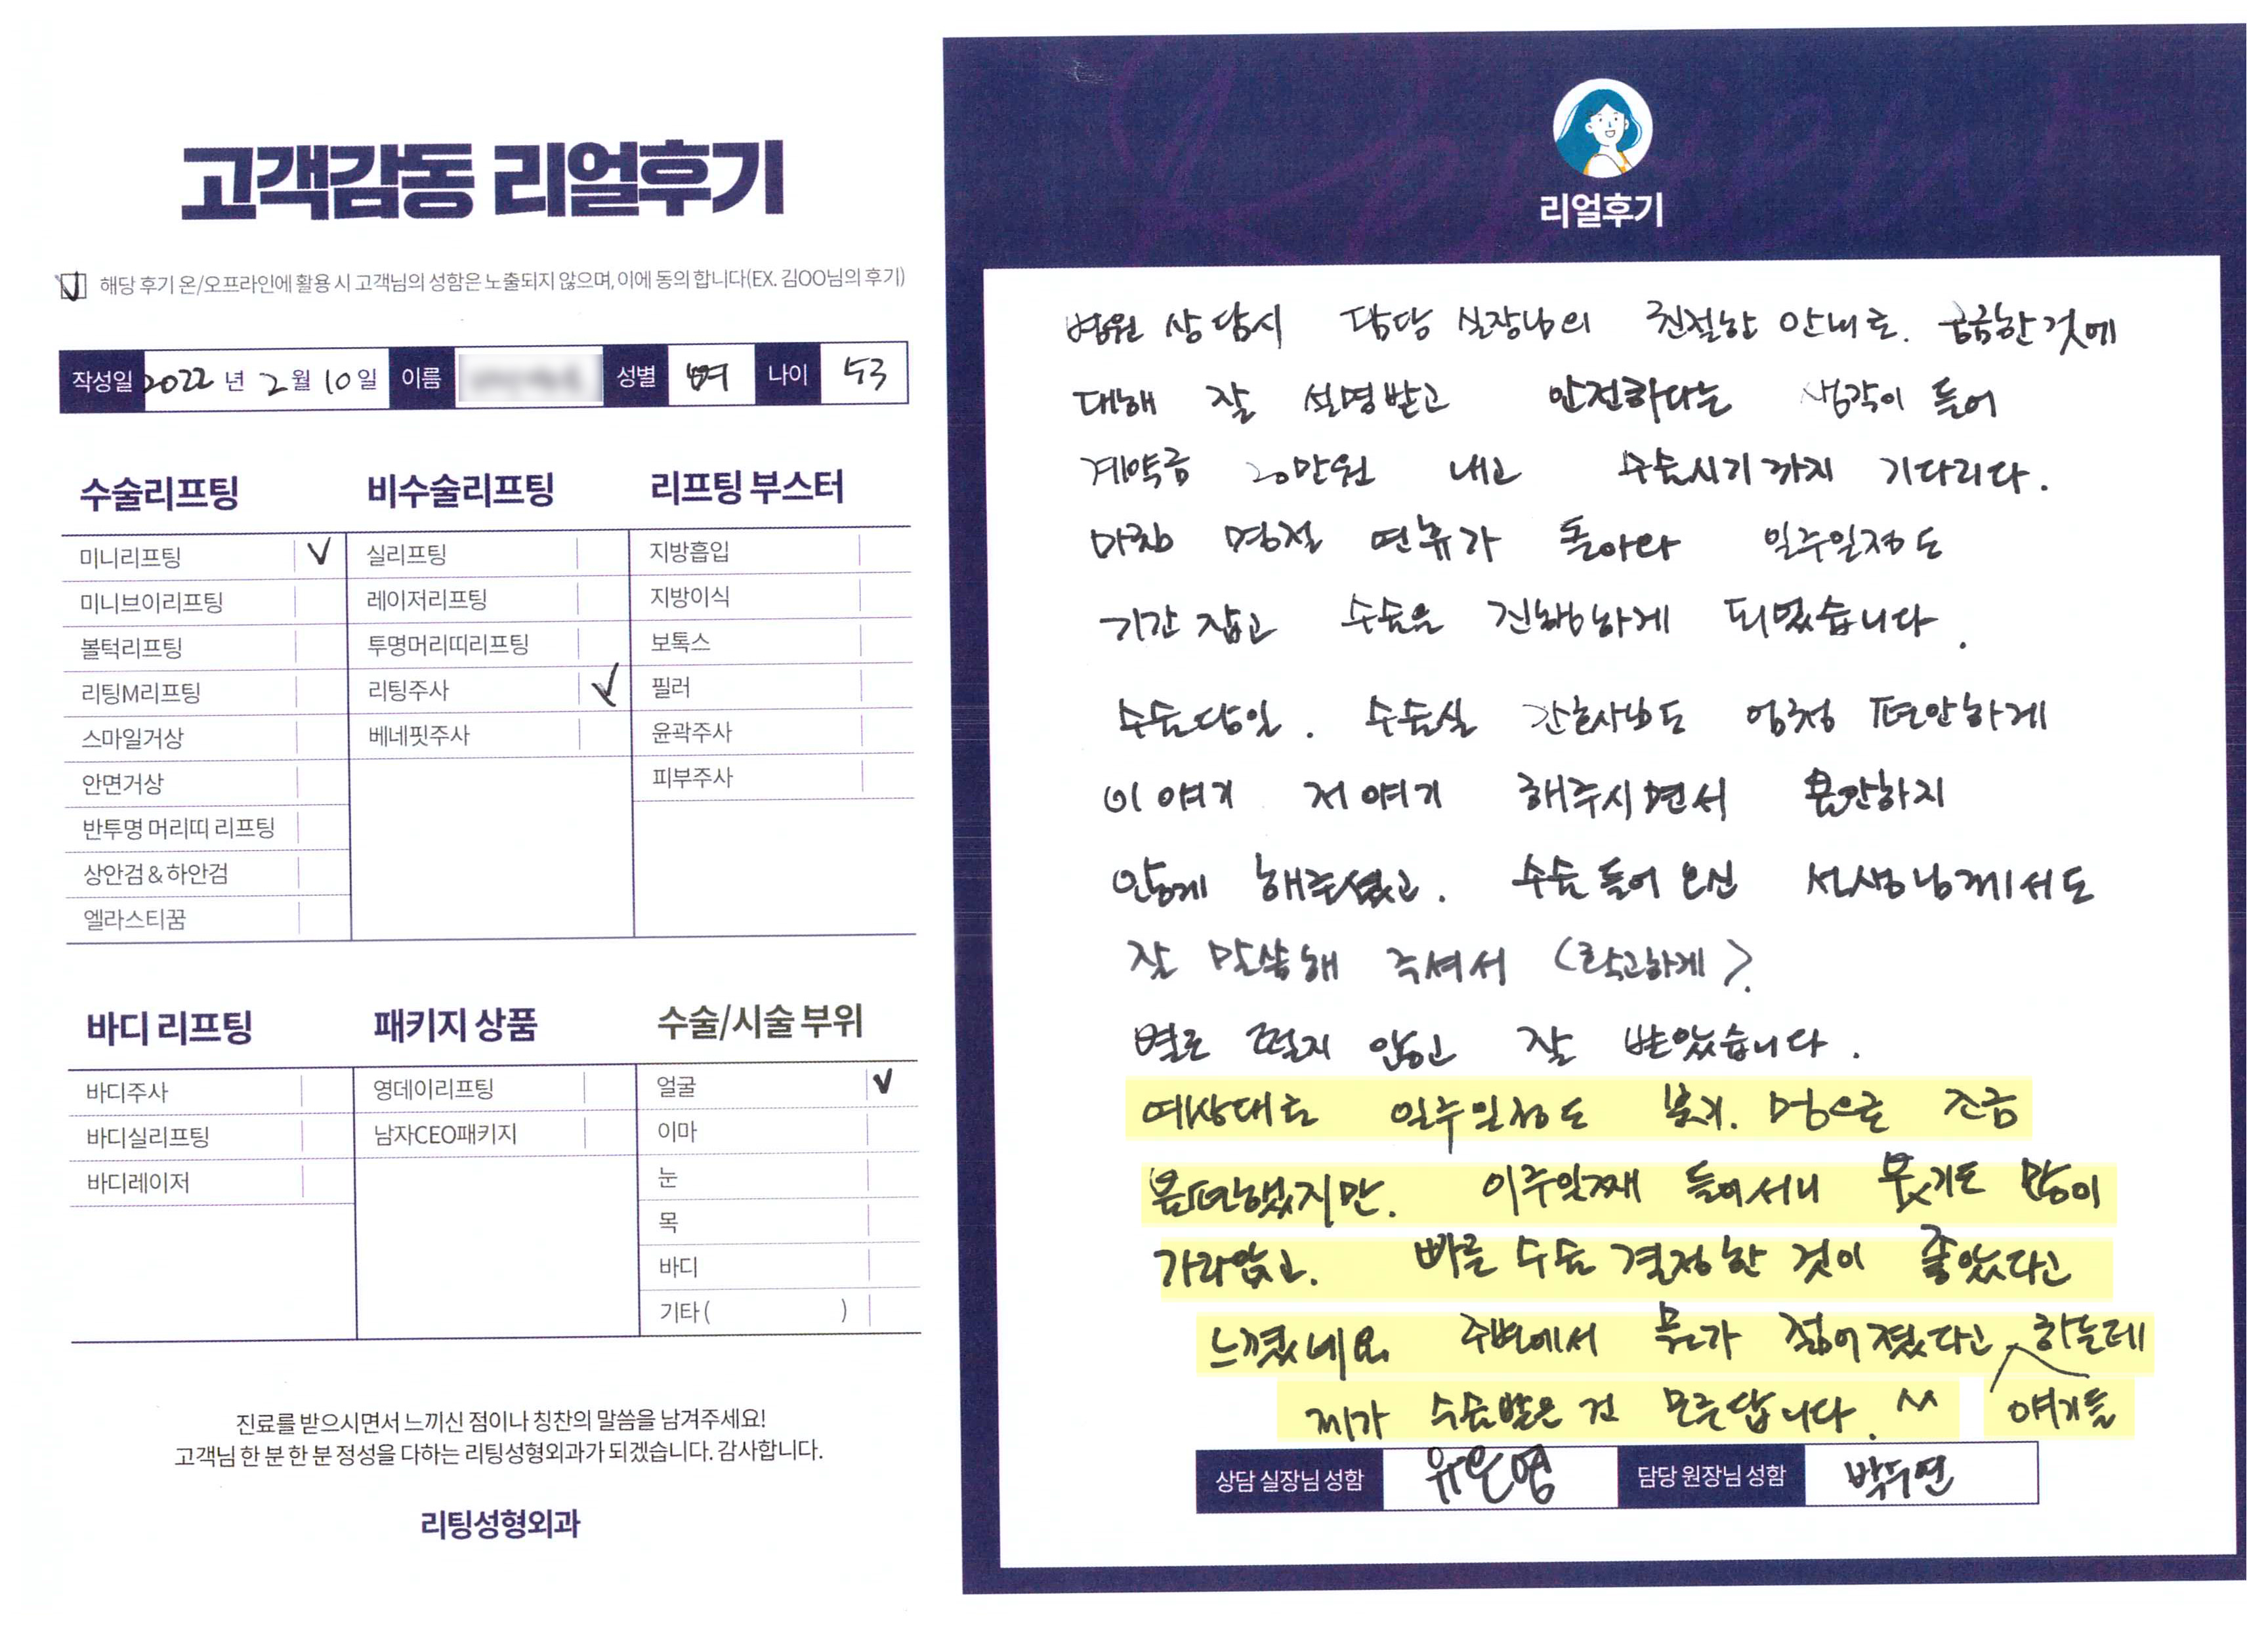 고객감동 리얼후기
해당 후기 온/오프라인에 활용 시 고객님의 성함은 노출되지 않으며, 이에 동의 합니다(EX. 김OO님의 후기)
작성일 2022년 2월 10일 이름 성별 여 나이 53
수술리프팅
미니리프팅 V
미니브이리프팅
볼턱리프팅
리팅M리프팅
스마일거상
안면거상
반투명 머리띠 리프팅
상안검 & 하안검
엘라스티꿈
비수술리프팅
실리프팅
레이저리프팅
투명머리띠리프팅
리팅주사 V
베네핏주사
리프팅 부스터
지방흡입
지방이식
보톡스
필러
윤곽주사
피부주사
바디 리프팅
바디주사
바디실리프팅
바디레이저
패키지 상품
영데이리프팅
남자CEO패키지
수술/시술 부위
얼굴 V
이마
눈
목
바디
기타 ( )
진료를 받으시면서 느끼신 점이나 칭찬의 말씀을 남겨주세요!
고객님 한 분 한 분 정성을 다하는 리팅성형외과가 되겠습니다. 감사합니다.
리팅성형외과
리얼후기
병원 상담시 담당 실장님의 친절한 안내로. 궁금한것에
대해 잘 설명받고 안전하다는 생각이 들어
계약금 20만원 내고 수술시기까지 기다리다.
마침 명절 연휴가 돌아와 일주일정도
기간 잡고 수술을 진행하게 되었습니다.
수술당일. 수술실 간호사님도 엄청 편안하게
이 얘기 저 얘기 해주시면서 불안하지
않게 해주셨고. 수술 들어오신 선생님께서도
잘 말씀해 주셔서 (확고하게).
별로 떨지 않고 잘 받았습니다.
예상대로 일주일정도 붓기. 멍으로 조금
불편했지만. 이주일째 들어서니 붓기도 많이
가라앉고. 빠른 수술 결정한 것이 좋았다고
느꼈네요. 주변에서 뭔가 젊어졌다고 하는데
얘기들
제가 수술받은 건 모른답니다. ^^
상담 실장님 성함 유은영 담당 원장님 성함 박두연